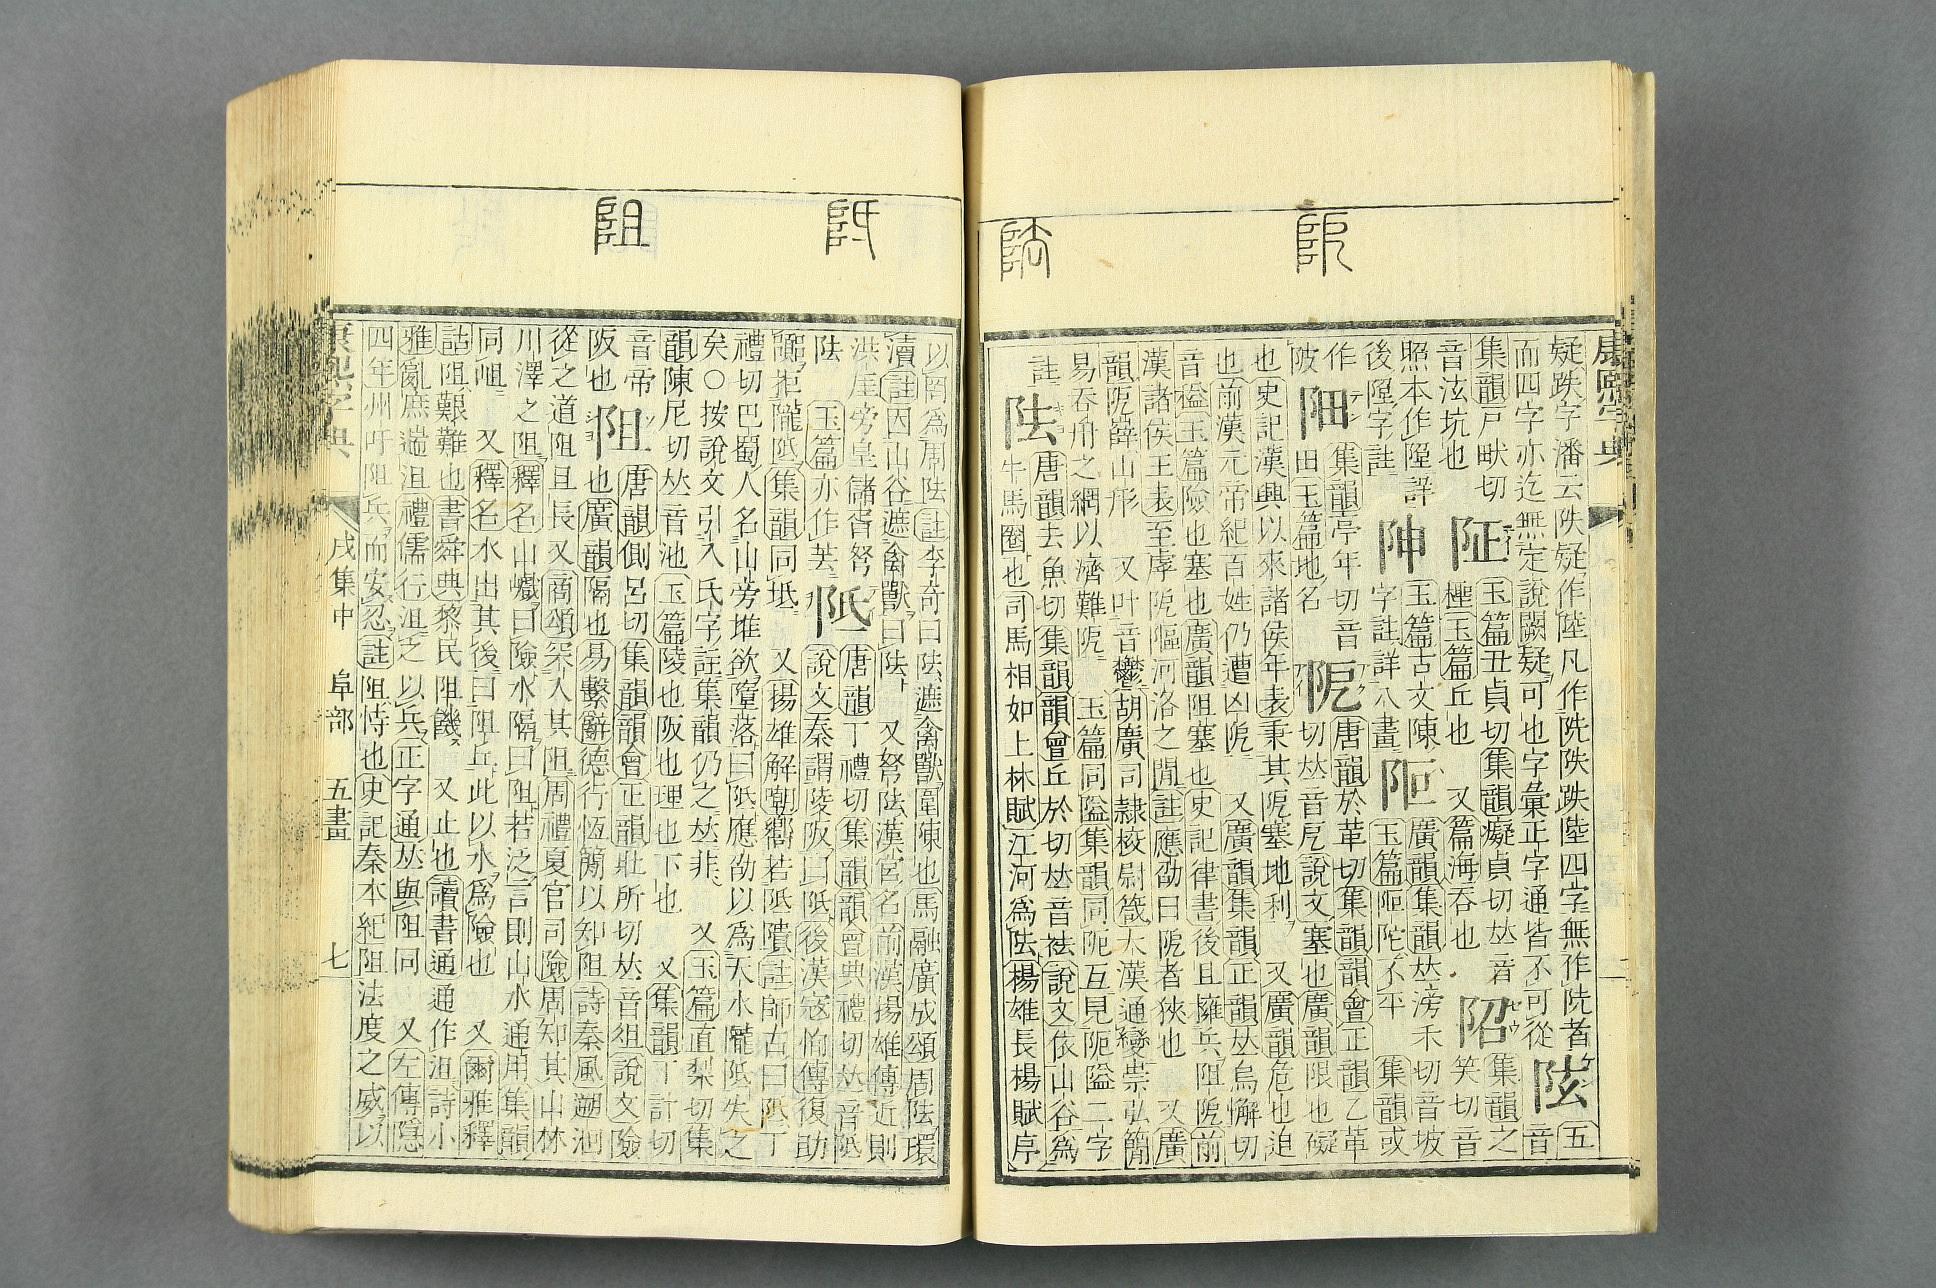 康熙字典
疑跌字潘云肤疑作陸凡作阢陕跌陸四字無作阬者
而四字亦迄無定說闕疑可也字彙正字通皆不可從
陓
五音
集韻戸畎切
音泫坑也
阷
玉篇丑貞切集韻癡貞切𠀤音
檉玉篇丘也 又篇海吞也
阳
集韻之
笑切音
照本作陞詳
後陞字註
陣
玉篇古文陳
字註詳八畫
𨸰
廣韻集韻𠀤滂禾切音坡
玉篇𨸰陀不平 集韻或
作陂
畋
集韻亭年切音
田玉篇地名
阸
唐韻於革切集韻韻會正韻乙革
切𠀤音戹說文塞也廣韻限也礙
也史記漢興以來諸侯年表秉其阸塞地利 又廣韻危也迫
也前漢元帝紀百姓仍遭凶阸 又廣韻集韻正韻𠀤烏懈切
音隘玉篇險也塞也廣韻阻塞也史記律書後且擁兵阻阸前
漢諸侯王表至虖阸𨻲河洛之閒註應劭曰阸者狹也 又廣
韻阸薜山形 又叶音鬱胡廣司隷校尉箴大漢通變崇弘簡
易吞舟之網以濟難阸 玉篇同隘集韻同阨互見阨隘二字
註
阹
唐韻去魚切集韻韻會丘於切𠀤音祛說文依山谷爲
牛馬圈也司馬相如上林賦江河爲阹楊雄長楊賦序
以罔爲周阹註李奇曰阹遮禽獸圍陳也馬融廣成頌周阹環
瀆註因山谷遮禽獸曰阹 又弩阹漢宮名前漢揚雄傳近則
洪厓旁皇儲胥弩
阹 玉篇亦作𦭵
阺
唐韻丁禮切集韻韻會典禮切𠀤音邸
說文秦謂陵阪曰阺後漢寇恂傳復助
囂拒隴阺集韻同坻 又揚雄解嘲嚮若阺隤註師古曰阺丁
禮切巴蜀人名山旁堆欲墮落曰阺應劭以爲天水隴阺失之
矣○按說文引入氏字註集韻仍之𠀤非 又玉篇直梨切集
韻陳尼切𠀤音池玉篇陵也阪也理也下也 又集韻丁計切
音帝
阪也
阻
唐韻側呂切集韻韻會正韻壯所切𠀤音俎說文險
也廣韻隔也易繫辭德行恆簡以知阻詩秦風遡洄
從之道阻且長 又商頌罙入其阻周禮夏官司險周知其山林
川澤之阻釋名山巇曰險水隔曰阻若泛言則山水通用集韻
同岨 又釋名水出其後曰阻丘此以水爲險也 又爾雅釋
詁阻艱難也書舜典黎民阻饑 又止也讀書通通作沮詩小
雅亂庶遄沮禮儒行沮之以兵正字通𠀤與阻同 又左傳隱
四年州吁阻兵而安忍註阻恃也史記秦本紀阻法度之威以
康熙字典 戌集中 阜部 五畫 七